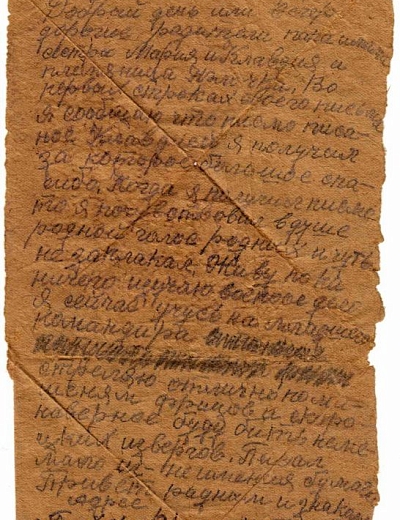 Добрый день или вечер
дорогие родители папа мама
сестра Мария и Клавдия и
племяница Во
первых строках своего письма
я сообщаю что письмо писа-
ное Клавдией я получил
за которое большое спа-
сибо. Когда я получил письмо
то я почувствовал в душе
родной голос родных и чуть
не заплакал, живу по ка
ничего изучаю военное дело
Я сейчас учусь на младшего
командира
стреляю отлично по ми-
шеням фрицов и скоро
наверное буду бить неме-
цких извергов. Писал
мало из-за неимения бумаги
Привет родным и знаком
адрес